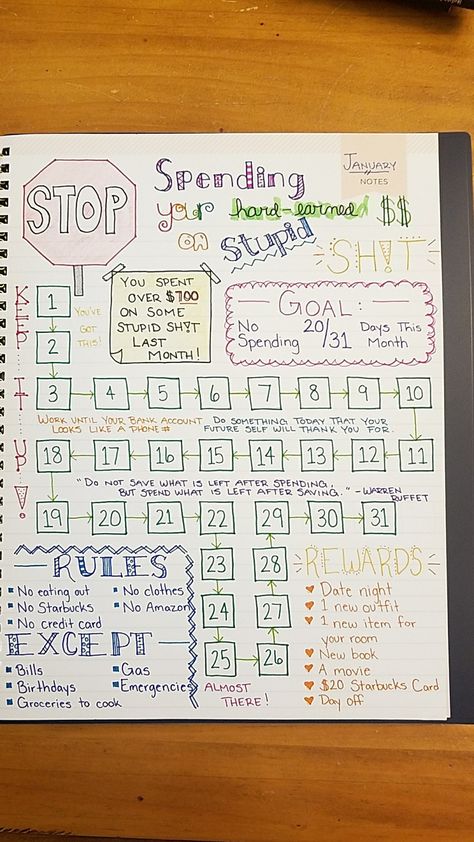 STOP
Spending
your hard-earned $$
on stupid
SH!T
JANUARY
NOTES
YOU SPENT
OVER $700
ON SOME
STUPID SH!T
LAST
MONTH!
GOAL:
No Spending 20/31 Days This Month
KEEP IT UP!
1
YOU'VE GOT THIS!
2
3 4 5 6 7 8 9 10
WORK UNTIL YOUR BANK ACCOUNT LOOKS LIKE A PHONE #
DO SOMETHING TODAY THAT YOUR FUTURE SELF WILL THANK YOU FOR.
18 17 16 15 14 13 12 11
"DO NOT SAVE WHAT IS LEFT AFTER SPENDING,
BUT SPEND WHAT IS LEFT AFTER SAVING." -WARREN BUFFET
19 20 21 22 29 30 31
23 28
24 27
25 26
ALMOST THERE!
RULES
No eating out
No Starbucks
No credit card
No clothes
No Amazon
EXCEPT
Bills
Birthdays
Groceries to cook
Gas
Emergencies
REWARDS
Date night
1 new outfit
1 new item for
your room
New book
A movie
$20 Starbucks Card
Day off